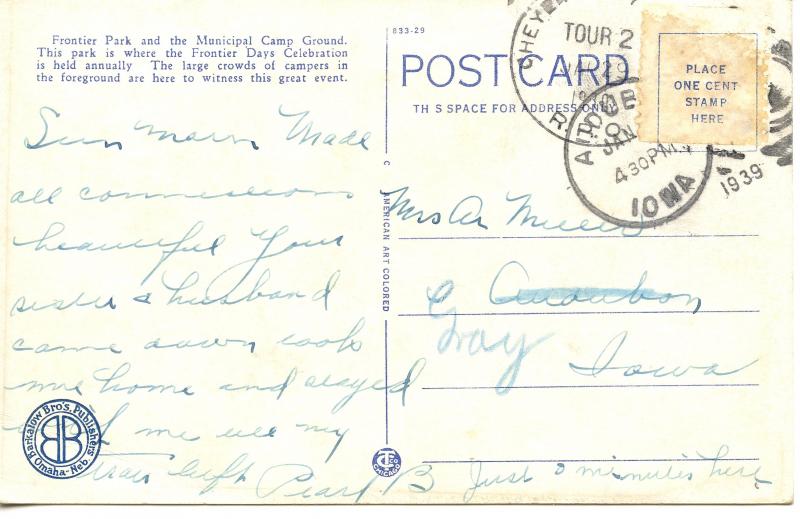 Frontier Park and the Municipal Camp Ground.
This park is where the Frontier Days Celebration
is held annually. The large crowds of campers in
the foreground are here to witness this great event.
833-29
POST CARD
TH S SPACE FOR ADDRESS ONLY
PLACE
ONE CENT
STAMP
HERE
TOUR 2
JAN
4 30 PM
IOWA
1939
Sun Morn Made
all connections
beautiful Your
sister & husband
came down took
me home and stayed
me my
train left
Pearl B
Just
here
C
AMERICAN ART COLORED
Mrs Miller
Audubon
Gray
Iowa
Barkalow Bro's. Publishers
Omaha-Neb.
CHICAGO